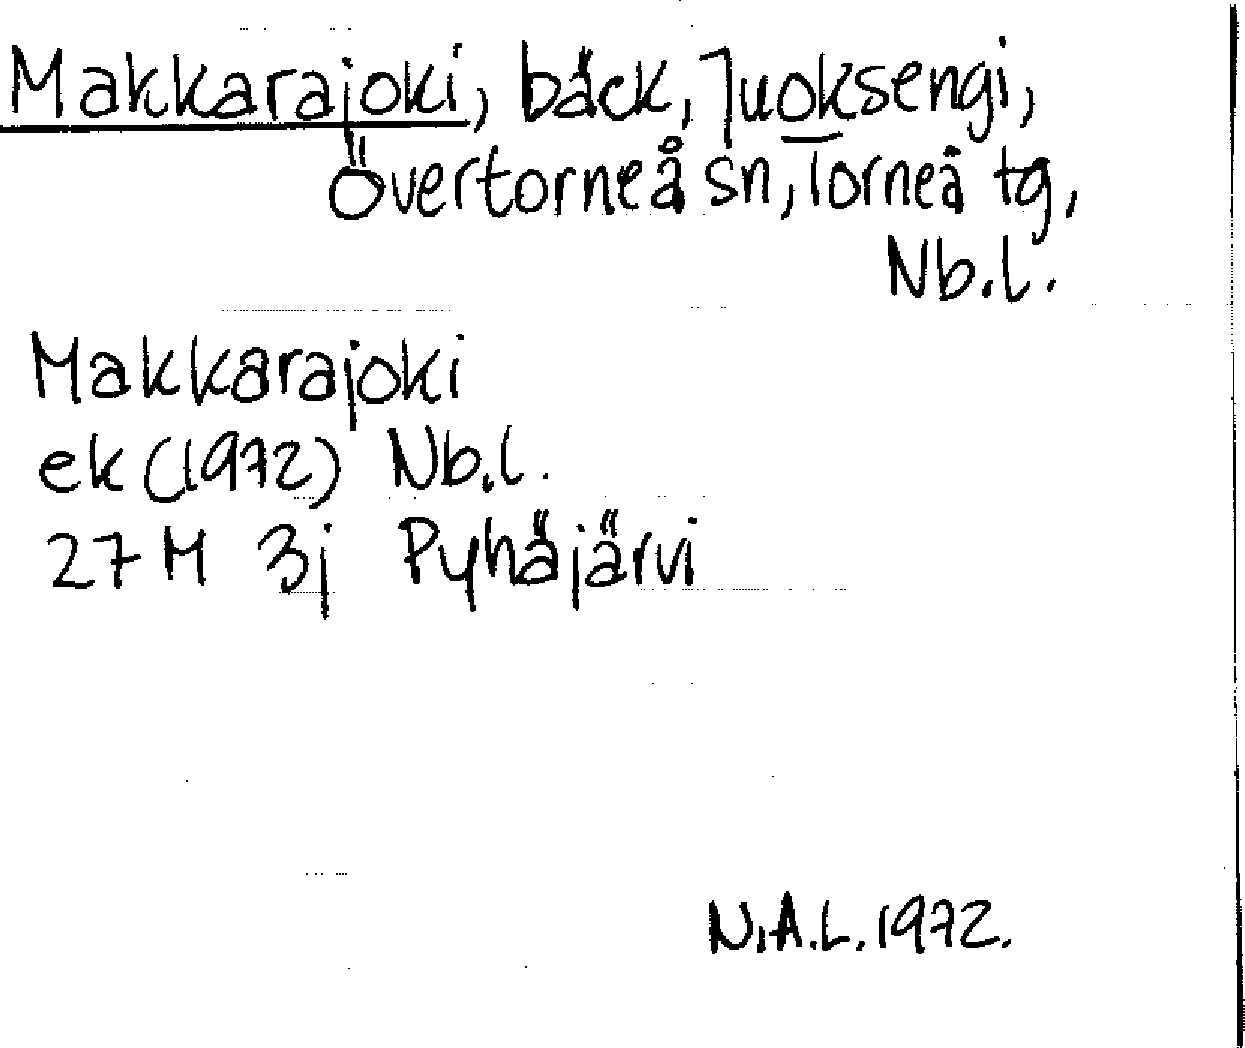 Makkarajoki, bäck, Juoksengi,
Övertorneå sn, Torneå tg,
Nb.l.
Makkarajoki
ek (1972) Nb.l.
27 M 3j Pyhäjärvi
N.A.L. 1972.